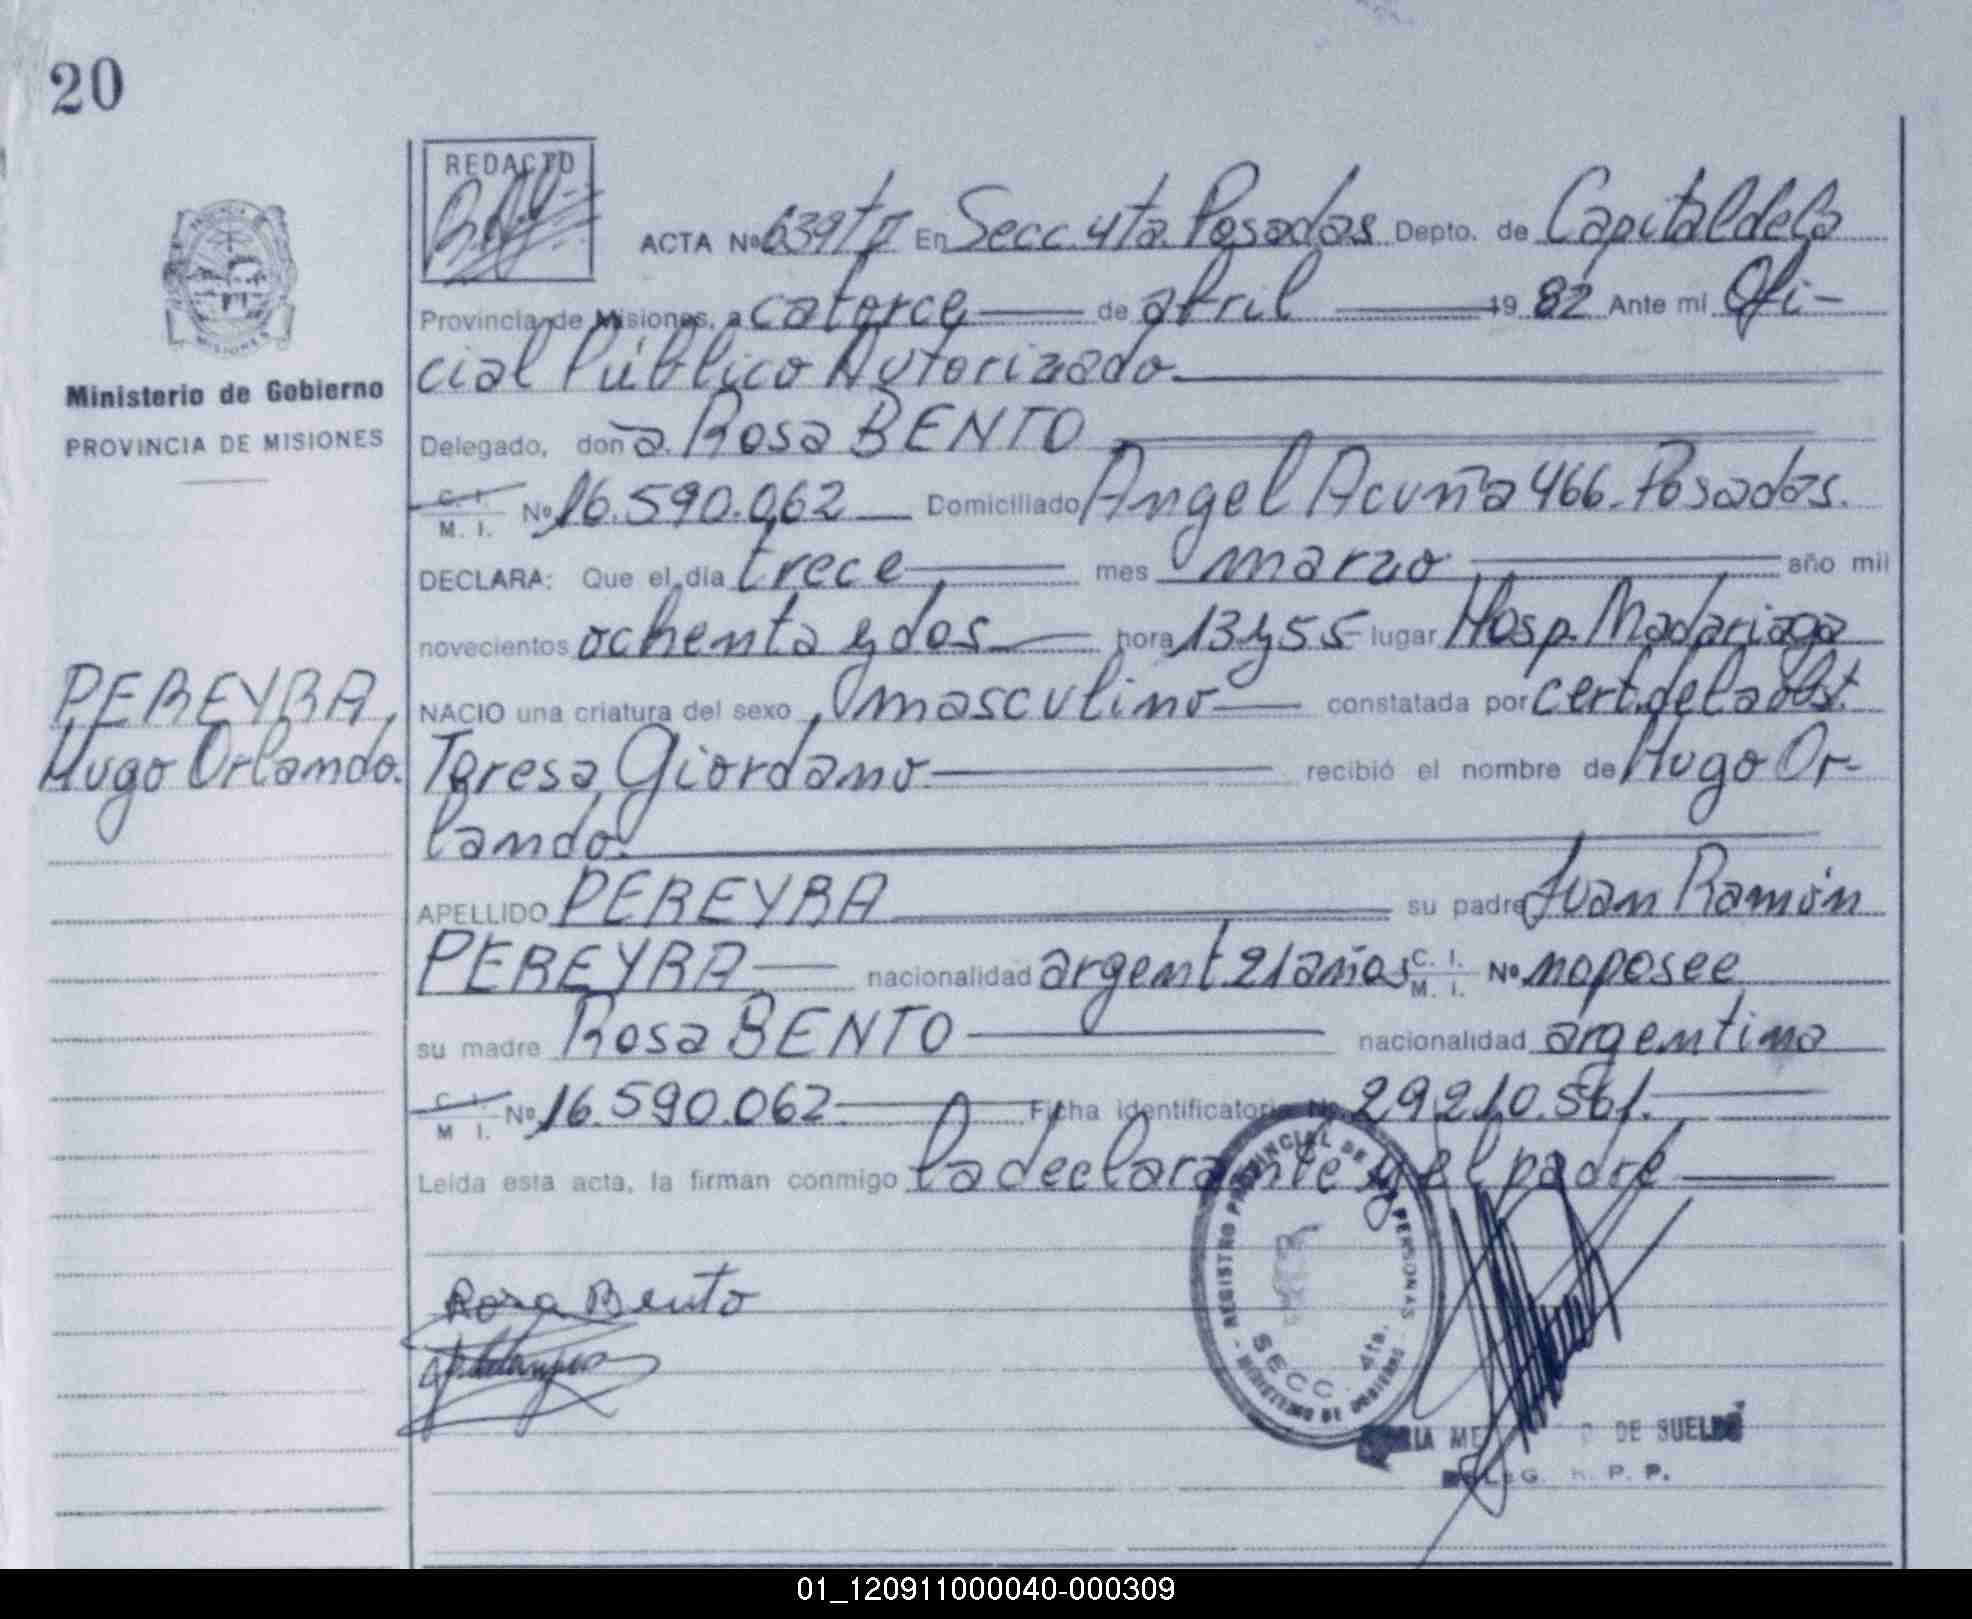 20
REDACTO
ACTA Nº 639 t I En Secc. 4ta. Posadas Depto. de Capital de la
Provincia de Misiones, a catorce de abril 1982 Ante mi Ofi-
cial Público Autorizado
Ministerio de Gobierno
PROVINCIA DE MISIONES
Delegado, don a. Rosa BENTO
C. I. M. I. Nº 16.590.062 Domiciliado Angel Acuña 466. Posadas.
DECLARA: Que el día trece mes marzo año mil
novecientos ochenta y dos hora 13 y 55 lugar Hosp. Madariaga
NACIO una criatura del sexo masculino constatada por cert. de la obst.
PEREYRA,
Hugo Orlando.
Teresa Giordano recibió el nombre de Hugo Or-
lando.
APELLIDO PEREYRA su padre Juan Ramón
PEREYRA nacionalidad argent. 21 años C. I. M. I. Nº no posee
su madre Rosa BENTO nacionalidad argentina
C. I. M I. Nº 16.590.062 Ficha identificatoria Nº 29.210.561.
Leida esta acta, la firman conmigo la declarante y el padre
Rosa Bento
REGISTRO PROVINCIAL DE LAS PERSONAS
SECC. 4ta.
MINISTERIO DE GOBIERNO
DE SUELDO
DELEG. R. P. P.
01_120911000040-000309